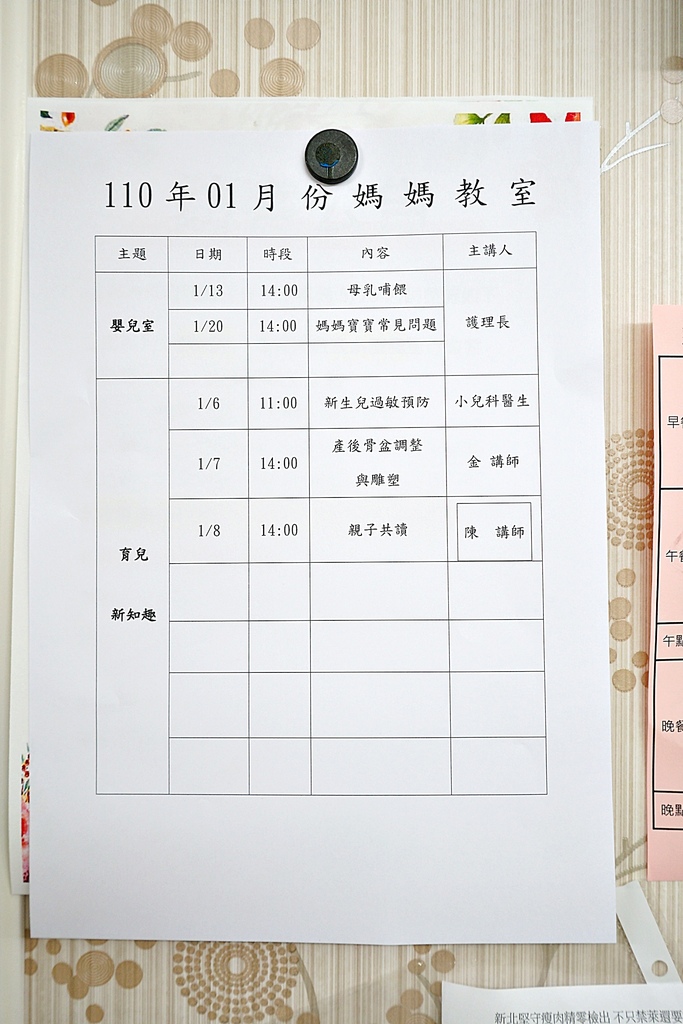 110 年 01 月 份 媽 媽 教 室
主題 日期 時段 內容 主講人
嬰兒室 1/13 14:00 母乳哺餵 護理長
1/20 14:00 媽媽寶寶常見問題
育兒 新知趣 1/6 11:00 新生兒過敏預防 小兒科醫生
1/7 14:00 產後骨盆調整 金 講師
與雕塑
1/8 14:00 親子共讀 陳 講師
早
午餐
午點
晚餐
晚點
新北堅守瘦肉精零檢出 不只禁萊還要